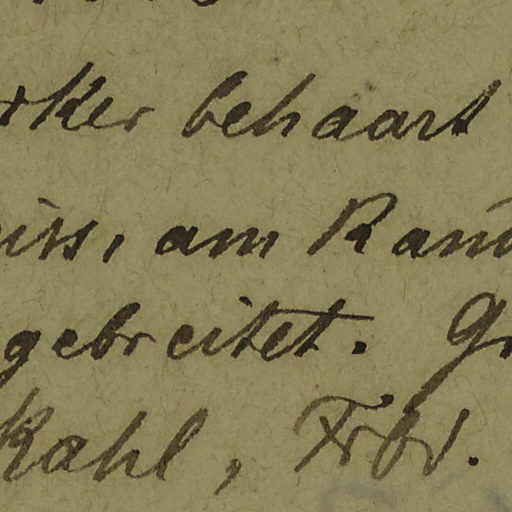 rker behaart
iss, am Rand
gebreitet. Gr
Kahl, Frbd.